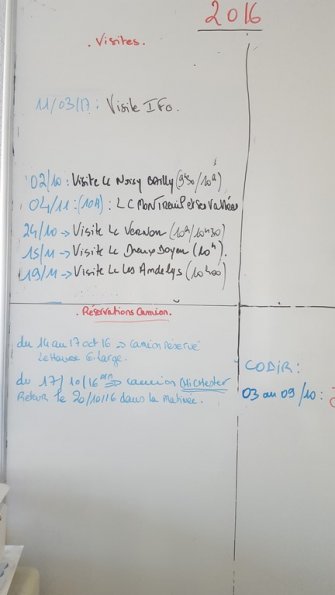 2016
. Visites.
11/03/17 : Visite IFo.
02/10 : Visite Lc Noisy Bailly (9h30/10h)
04/11 : (10h) : LC MONTREUIL et ses vallées
24/10 → Visite Lc VERNON (10h/10h30)
15/11 → Visite Lc Dreux Doyen (10h).
19/11 → Visite Lc Les Andelys (10h00)
Réservations Camion.
du 14 au 17 oct 16 → camion réservé
Le Havre G. large.
du 17/10/16 → camion
Retour le 20/10/16 dans la matinée.
CODIR :
03 au 09/10 :